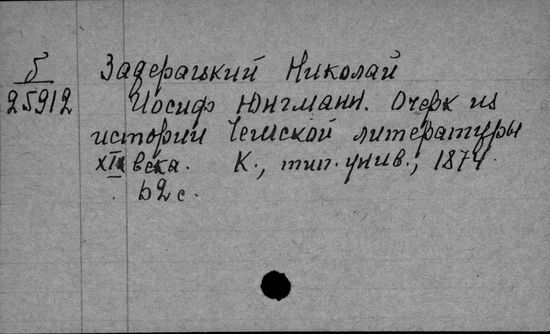 б Задерацкий Николай
25912 Иосиф Юнгманн. Очерк из
истории Чешской литературы
века. К., тип. унив., 1874.
62 с.